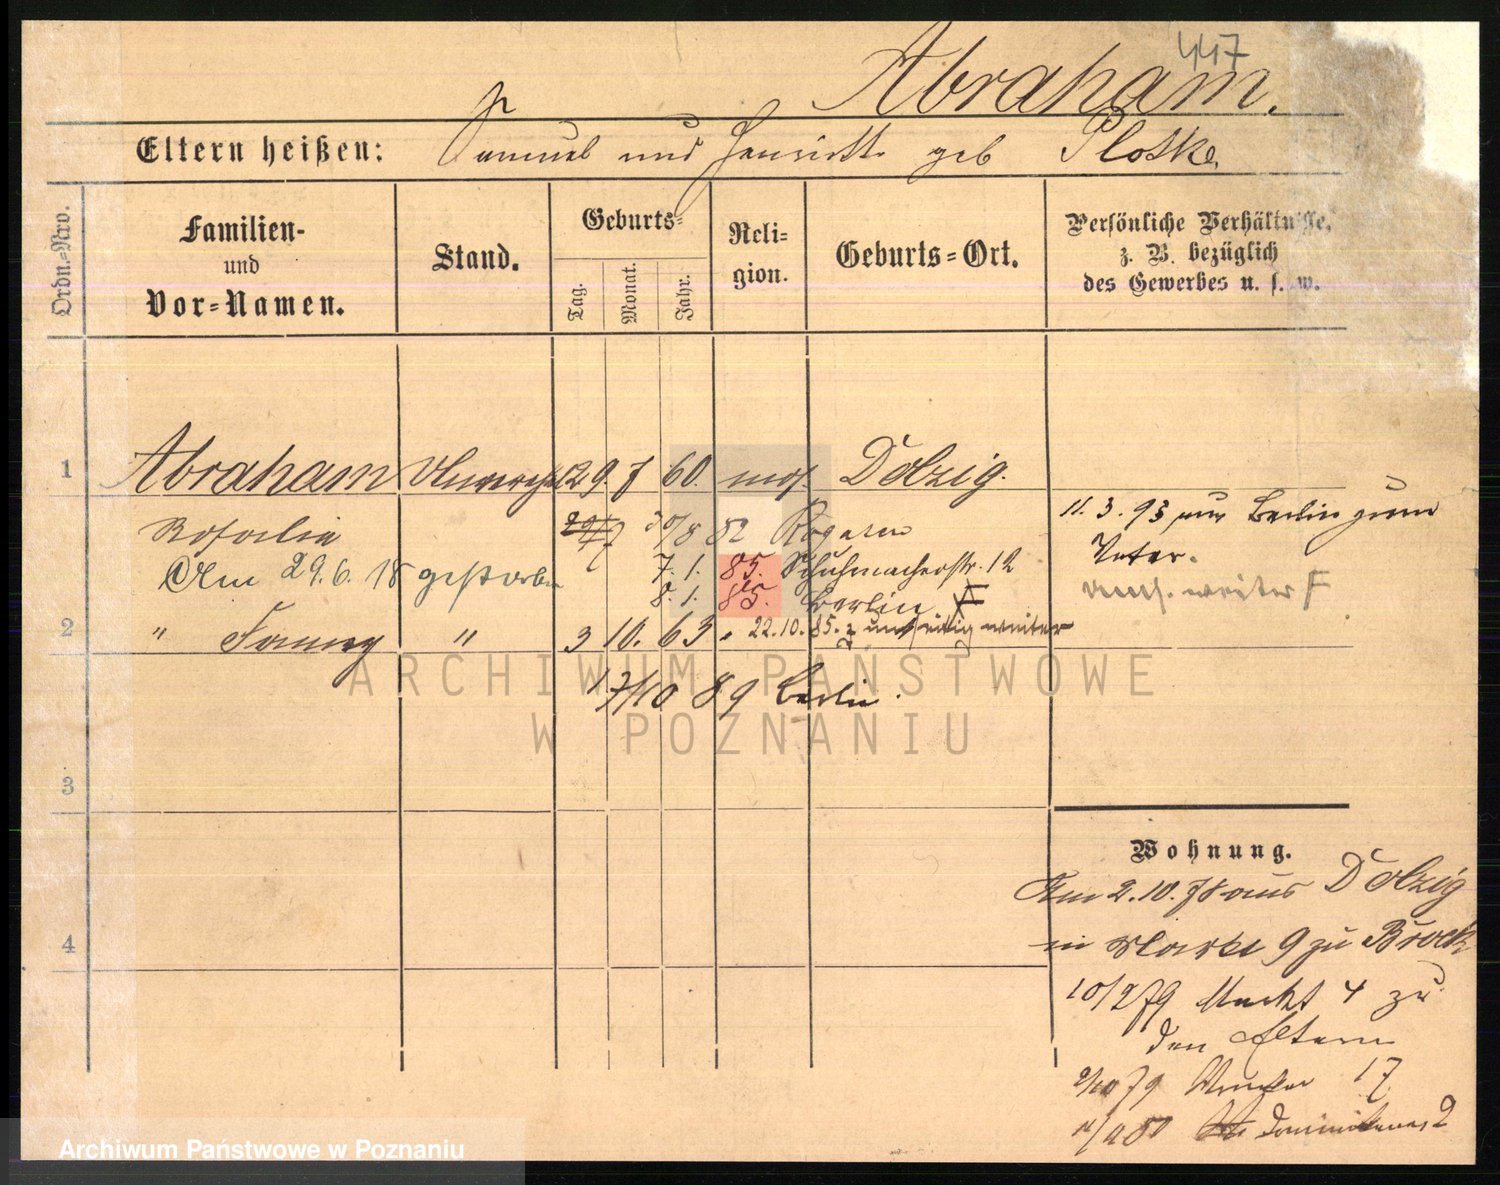 447
Abraham.
Eltern heißen: Samuel und Henriette geb Ploske.
Ordn.=Nro.
Familien- und Vor=Namen.
Stand.
Geburts=
Tag.
Monat.
Jahr.
Reli= gion.
Geburts=Ort.
Persönliche Verhältnisse, z. B. bezüglich des Gewerbes u. s. w.
1 Abraham 29. 8 60. mos. Dolzig.
11. 3. 93 aus Berlin zum
Vater.
Rosalie 29/7 30/8 82 Rogasen
Am 29.6.18 gestorben 7. 1. 85. Schuhmacherstr. 12
8. 1. 85. Berlin
weiter F
2 " Fanny " 3 10. 63 " 22.10.85. weiter
17/10 89 Berlin.
3
4
Wohnung.
Am 2.10.78 aus Dolzig
in Markt 9 zu Brock
10/2 79 Markt 4 zu
den Eltern
79 17
80 Dominikaner 2
ARCHIWUM PAŃSTWOWE
W POZNANIU
Archiwum Państwowe w Poznaniu